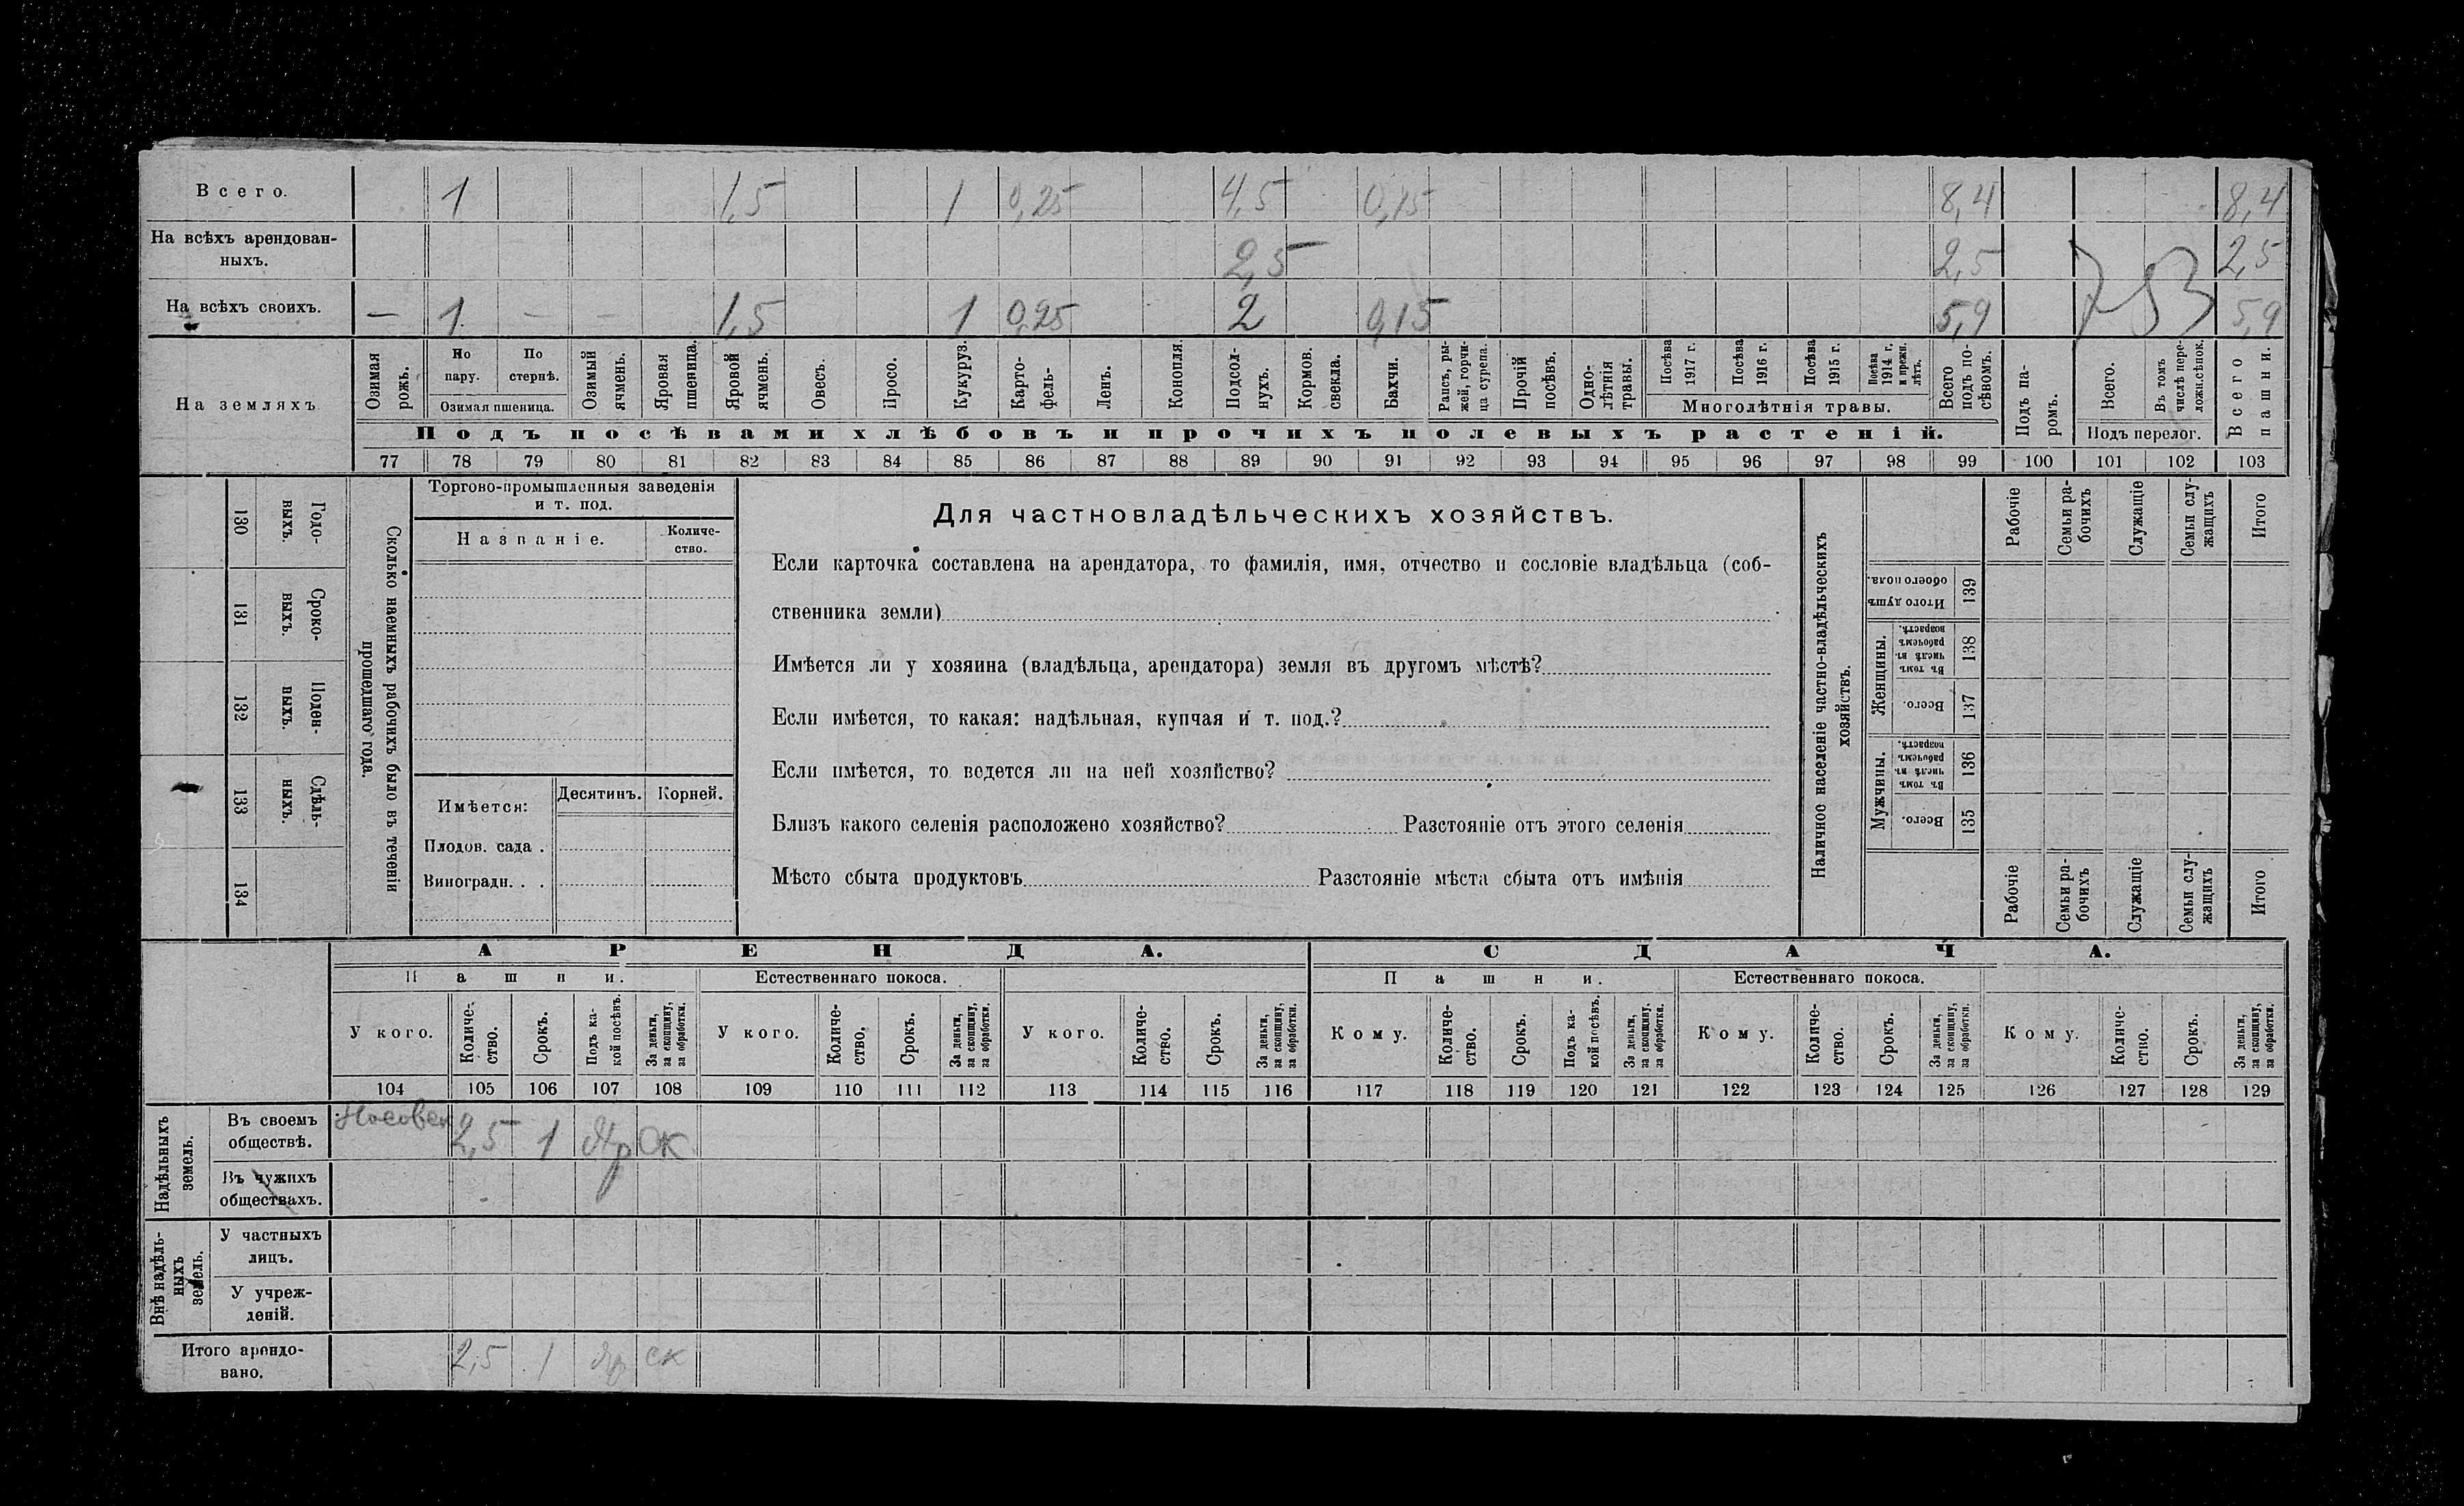 Всего. 1 1,5 1 0,25 4,5 0,15 8,4 8,4
На всѣхъ арендован-
ныхъ. 2,5 2,5 2,5
На всѣхъ своихъ. — 1 — — 1,5 1 0,25 2 0,15 5,9 5,9
На земляхъ
Озимая рожь.
По пару.
По стернѣ.
Озимая пшеница.
Озимый ячмень.
Яровая пшеница.
Яровой ячмень.
Овесъ.
Просо.
Кукуруз.
Карто-
фель-
Ленъ.
Конопля.
Подсол-
нухъ.
Кормов. свекла.
Бахчи.
Рапсъ, ры-
жей, горчи-
ца сурепа.
Прочій посѣвъ.
Одно-
лѣтнія травы.
Посѣва 1917 г.
Посѣва 1916 г.
Посѣва 1915 г.
Посѣва 1914 г. и прежн. лѣтъ.
Многолѣтнія травы.
Всего подъ по-
сѣвомъ.
Подъ па-
ромъ.
Всего.
Въ томъ числѣ пере-
лож.сѣнок.
Подъ перелог.
Всего пашни.
Подъ посѣвами хлѣбовъ и прочихъ полевыхъ растеній.
77 78 79 80 81 82 83 84 85 86 87 88 89 90 91 92 93 94 95 96 97 98 99 100 101 102 103
Сколько наемныхъ рабочихъ было въ теченіи
прошедшаго года.
Годо-
выхъ.
130
Сроко-
выхъ.
131
Поден-
ныхъ.
132
Сдѣль-
ныхъ.
133
134
Торгово-промышленныя заведенія
и т. под.
Названіе.
Количе-
ство.
Имѣется:
Десятинъ. Корней.
Плодов. сада .
Виноградн. . .
Для частновладѣльческихъ хозяйствъ.
Если карточка составлена на арендатора, то фамилія, имя, отчество и сословіе владѣльца (соб-
ственника земли)
Имѣется ли у хозяина (владѣльца, арендатора) земля въ другомъ мѣстѣ?
Если имѣется, то какая: надѣльная, купчая и т. под.?
Если имѣется, то ведется ли на ней хозяйство?
Близъ какого селенія расположено хозяйство? Разстояніе отъ этого селенія
Мѣсто сбыта продуктовъ Разстояніе мѣста сбыта отъ имѣнія
Наличное населеніе частно-владѣльческихъ
хозяйствъ.
Рабочіе
Семьи ра-
бочихъ
Служащіе
Семьи слу-
жащихъ
Итого
Итого душъ обоего пола.
139
Женщины.
Въ томъ числѣ въ рабочемъ возрастѣ.
138
Всего.
137
Мужчины.
Въ томъ числѣ въ рабочемъ возрастѣ.
136
Всего.
135
Рабочіе
Семьи ра-
бочихъ
Служащіе
Семьи слу-
жащихъ
Итого
АРЕНДА. СДАЧА.
Пашни. Естественнаго покоса. Пашни. Естественнаго покоса.
У кого.
Количе-
ство.
Срокъ.
Подъ ка-
кой посѣвъ.
За деньги,
за скопщину,
за обработки.
У кого.
Количе-
ство.
Срокъ.
За деньги,
за скопщину,
за обработки.
У кого.
Количе-
ство.
Срокъ.
За деньги,
за скопщину,
за обработки.
Кому.
Количе-
ство.
Срокъ.
Подъ ка-
кой посѣвъ.
За деньги,
за скопщину,
за обработки.
Кому.
Количе-
ство.
Срокъ.
За деньги,
за скопщину,
за обработки.
Кому.
Количе-
ство.
Срокъ.
За деньги,
за скопщину,
за обработки.
104 105 106 107 108 109 110 111 112 113 114 115 116 117 118 119 120 121 122 123 124 125 126 127 128 129
Надѣльныхъ
земель.
Въ своемъ
обществѣ. 2,5 1 Яр Ск
Въ чужихъ
обществахъ.
Внѣ надѣль-
ныхъ
земель.
У частныхъ
лицъ.
У учреж-
деній.
Итого арендо-
вано. 2,5 1 яр ск